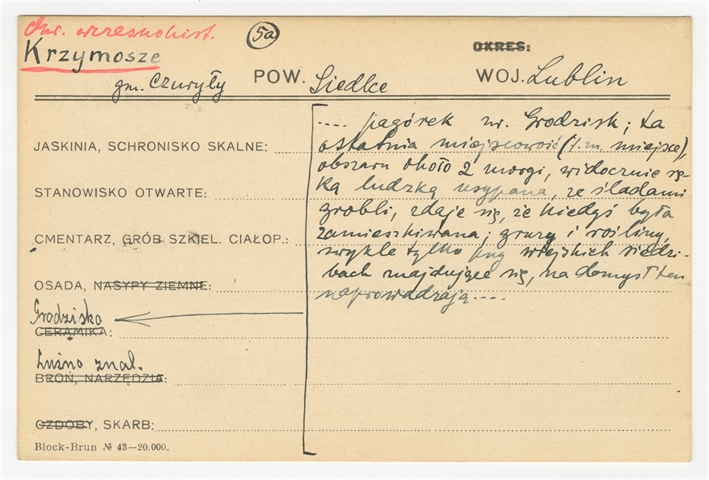 Okr. wczesnohist.
5a
OKRES:
Krzymosze
gm. Czuryły POW. Siedlce WOJ. Lublin
.... pagórek zw. Grodzisk; ta
JASKINIA, SCHRONISKO SKALNE:
ostatnia miejscowość (t.zn. miejsce),
obszaru około 2 morgi, widocznie rę-
STANOWISKO OTWARTE:
ką ludzką usypana, ze śladami
grobli, zdaje się, że kiedyś była
CMENTARZ, GRÓB SZKIEL. CIAŁOP.:
zamieszkiwana; gruzy i rośliny,
zwykle tylko przy wiejskich siedzi-
OSADA, NASYPY ZIEMNE:
bach znajdujące się, na domysł ten
naprowadzają....
Grodzisko
CERAMIKA:
Luźno znal.
BROŃ, NARZĘDZIA:
OZDOBY, SKARB:
Block-Brun № 43—20.000.